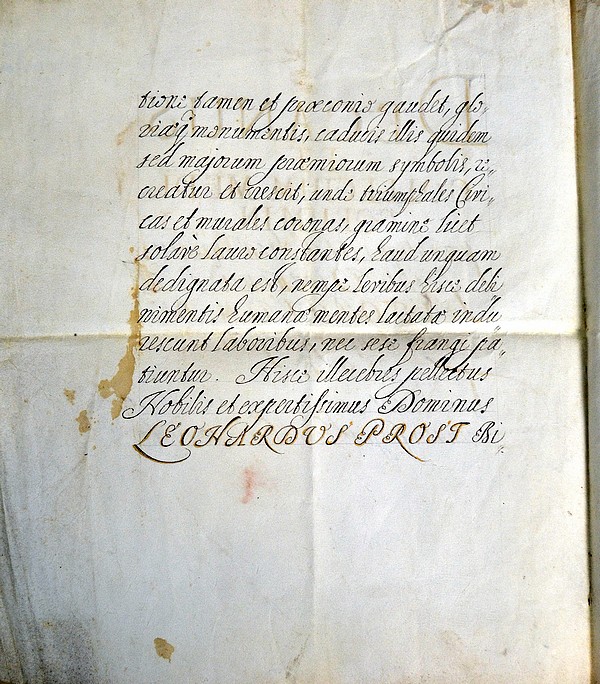 tione tamen et præconio gaudet, glo-
riæq̃ monumentis, caducis illis quidem
sed majorum præmiorum symbolis, re-
creatur et crescit; unde triumphales Civi-
cas et murales coronas, gramine licet
solave lauro constantes, haud unquam
dedignata est, nempe levibus hisce deli
nimentis humanæ mentes lactatæ indu
rescunt laboribus, nec sese frangi pa-
tiuntur. Hisce illecebres pellectus
Nobilis et expertissimus Dominus
LEONARDVS PROST Bi-